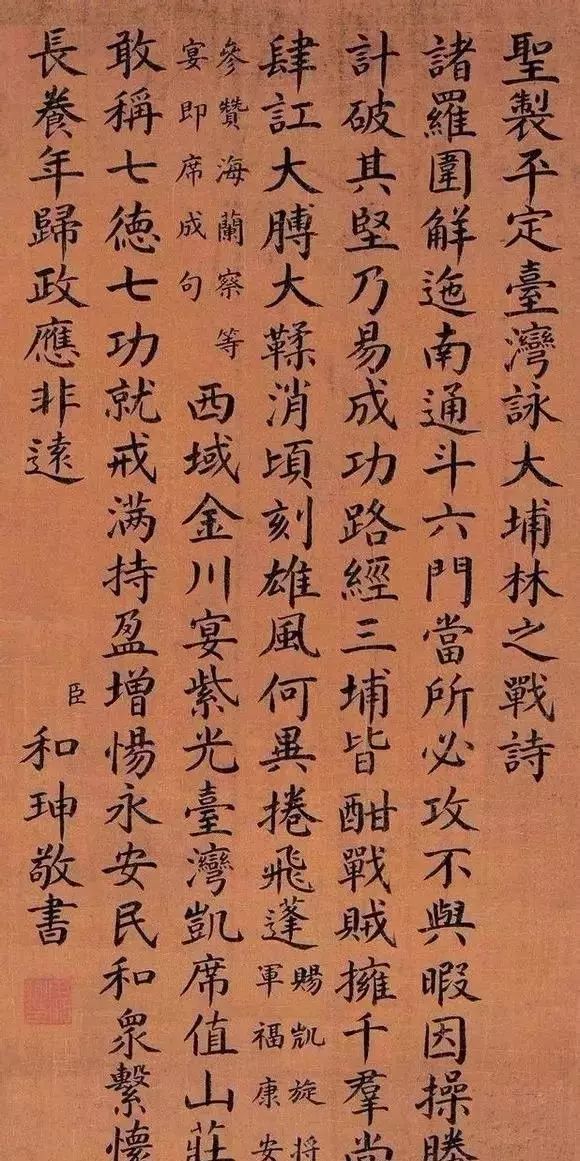 聖製平定臺灣詠大埔林之戰詩
諸羅圍解迤南通斗六門當所必攻不與暇因操勝
計破其堅乃易成功路經三埔皆酣戰賊擁千羣尚
肆訌大膊大鞣消頃刻雄風何異捲飛蓬
賜凱旋將
軍福康安
參贊海蘭察等
宴即席成句
西域金川宴紫光臺灣凱席值山莊
敢稱七德七功就戒满持盈增惕永安民和衆繫懷
長養年歸政應非逺
臣和珅敬書